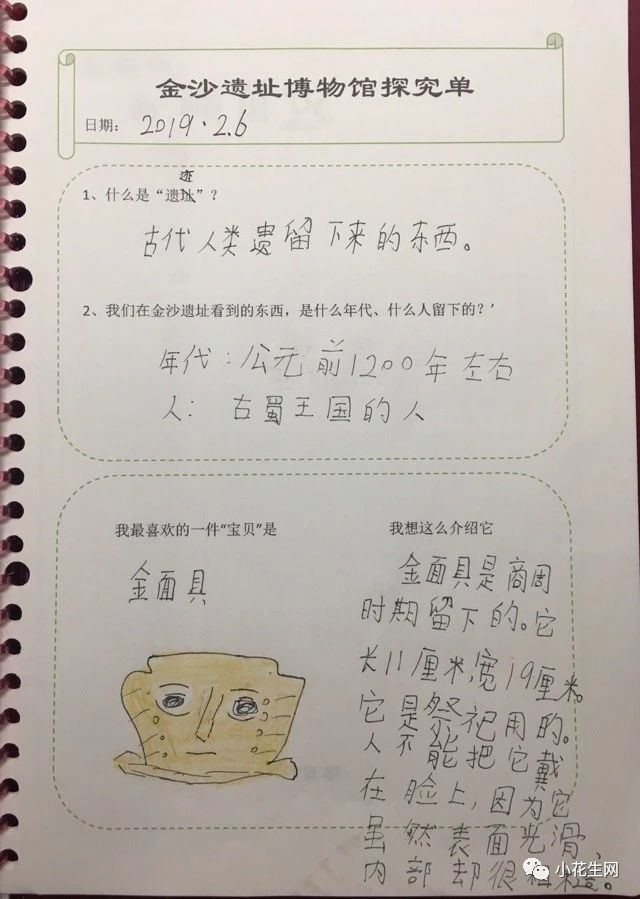 金沙遗址博物馆探究单
日期： 2019.2.6
1、什么是“遗址”？
古代人类遗留下来的东西。
2、我们在金沙遗址看到的东西，是什么年代、什么人留下的？
年代：公元前1200年左右
人：古蜀王国的人
我最喜欢的一件“宝贝”是
金面具
我想这么介绍它
金面具是商周
时期留下的。它
长11厘米，宽19厘米。
它是祭祀用的。
人不能把它戴
在脸上，因为它
虽然表面光滑，
内部却很粗糙。
小花生网